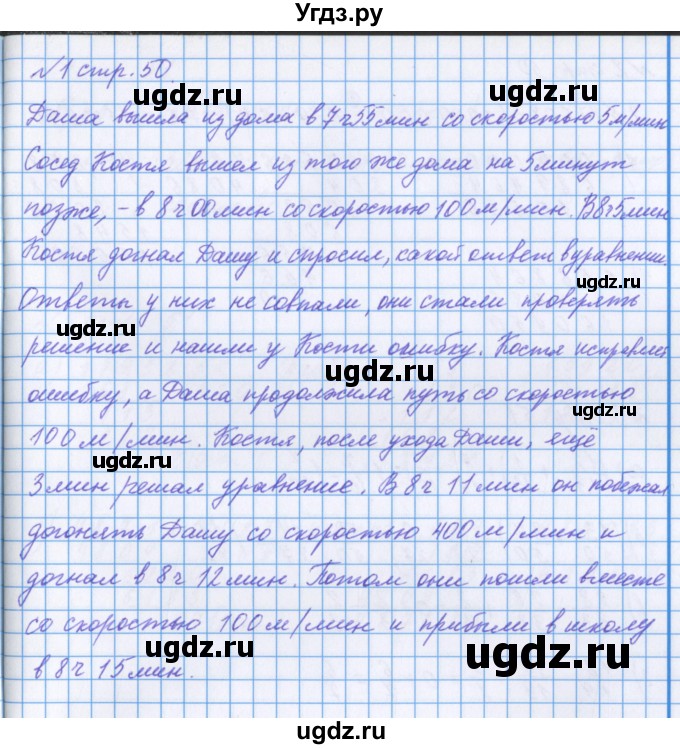 Угдз.ру
№1 стр. 50
ugdz.ru
ugdz.ru
Даша вышла из дома в 7ч 55 мин со скоростью 5 м/мин
Сосед Костя вышел из того же дома на 5 минут
ugdz.ru
ugdz.ru
позже, - в 8 ч 00 мин со скоростью 100 м/мин. В 8ч 5 мин
Костя догнал Дашу и спросил, какой ответ в уравнении.
ugdz.ru
Ответы у них не совпали, они стали проверять
ugdz.ru
решение и нашли у Кости ошибку. Костя исправлял
ugdz.ru
ошибку, а Даша продолжила путь со скоростью
ugdz.ru
100 м/мин. Костя, после ухода Даши, ещё
ugdz.ru
3 мин решал уравнение. В 8 ч 11 мин он побежал
ugdz.ru
догонять Дашу со скоростью 400 м/мин и
ugdz.ru
догнал в 8 ч 12 мин. Потом они пошли вместе
ugdz.ru
со скоростью 100 м/мин и прибыли в школу
ugdz.ru
ugdz.ru
в 8 ч 15 мин.
ugdz.ru